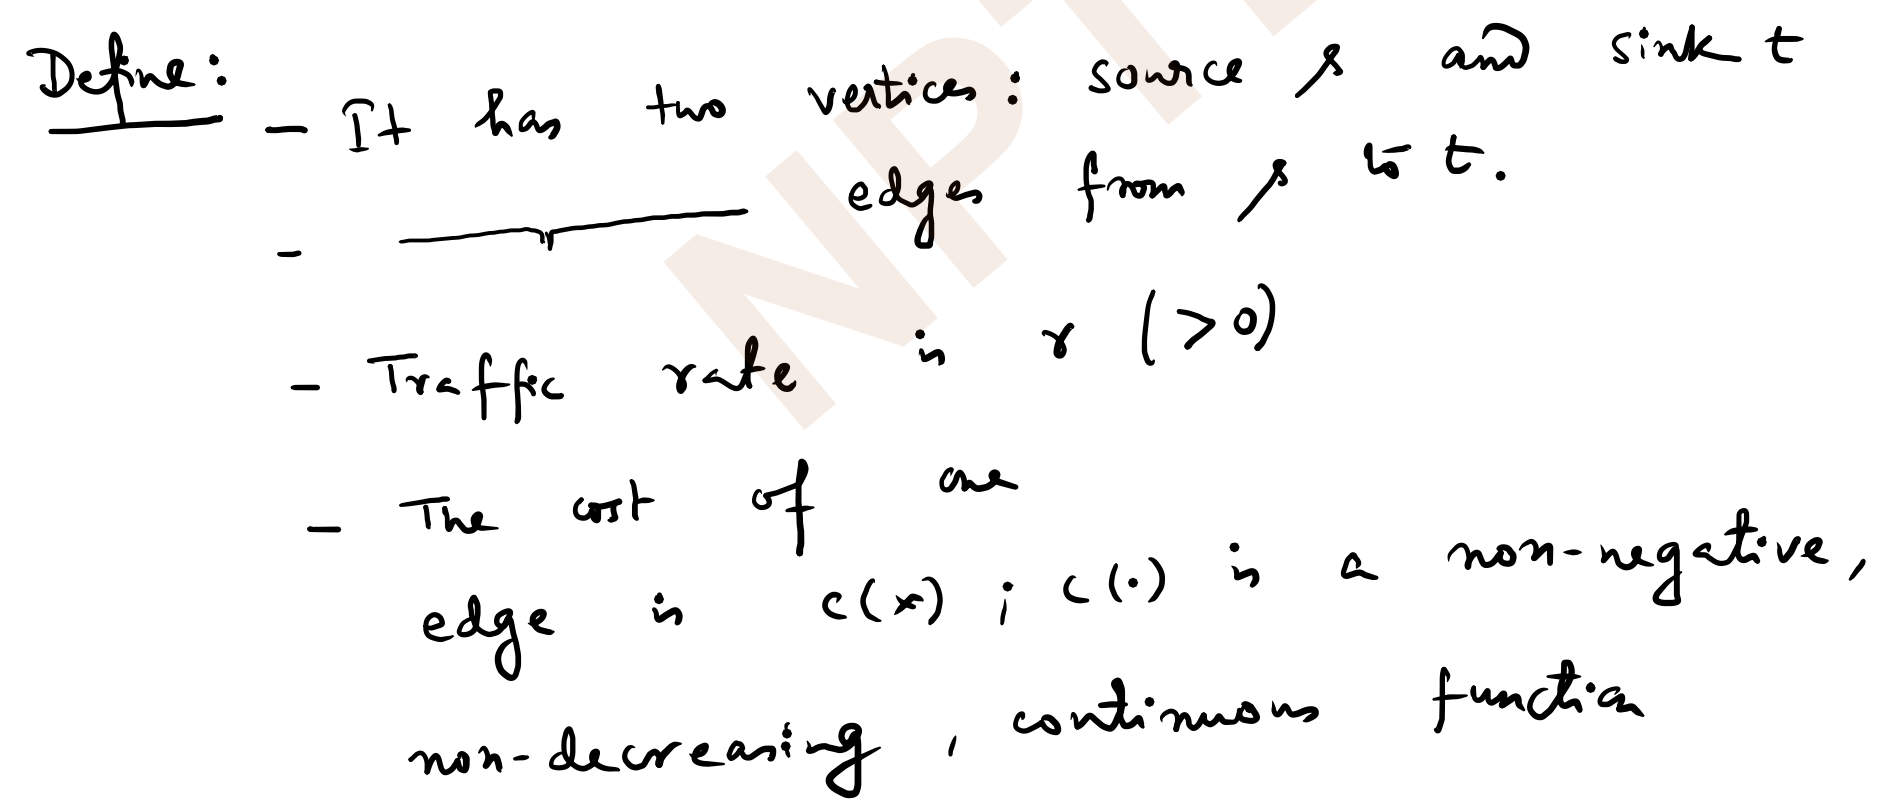 Define:
- It has two vertices: source s and sink t
- edges from s to t.
- Traffic rate is r (>0)
- The cost of one
edge is c(x) ; c(·) is a non-negative,
non-decreasing, continuous function
NPTE